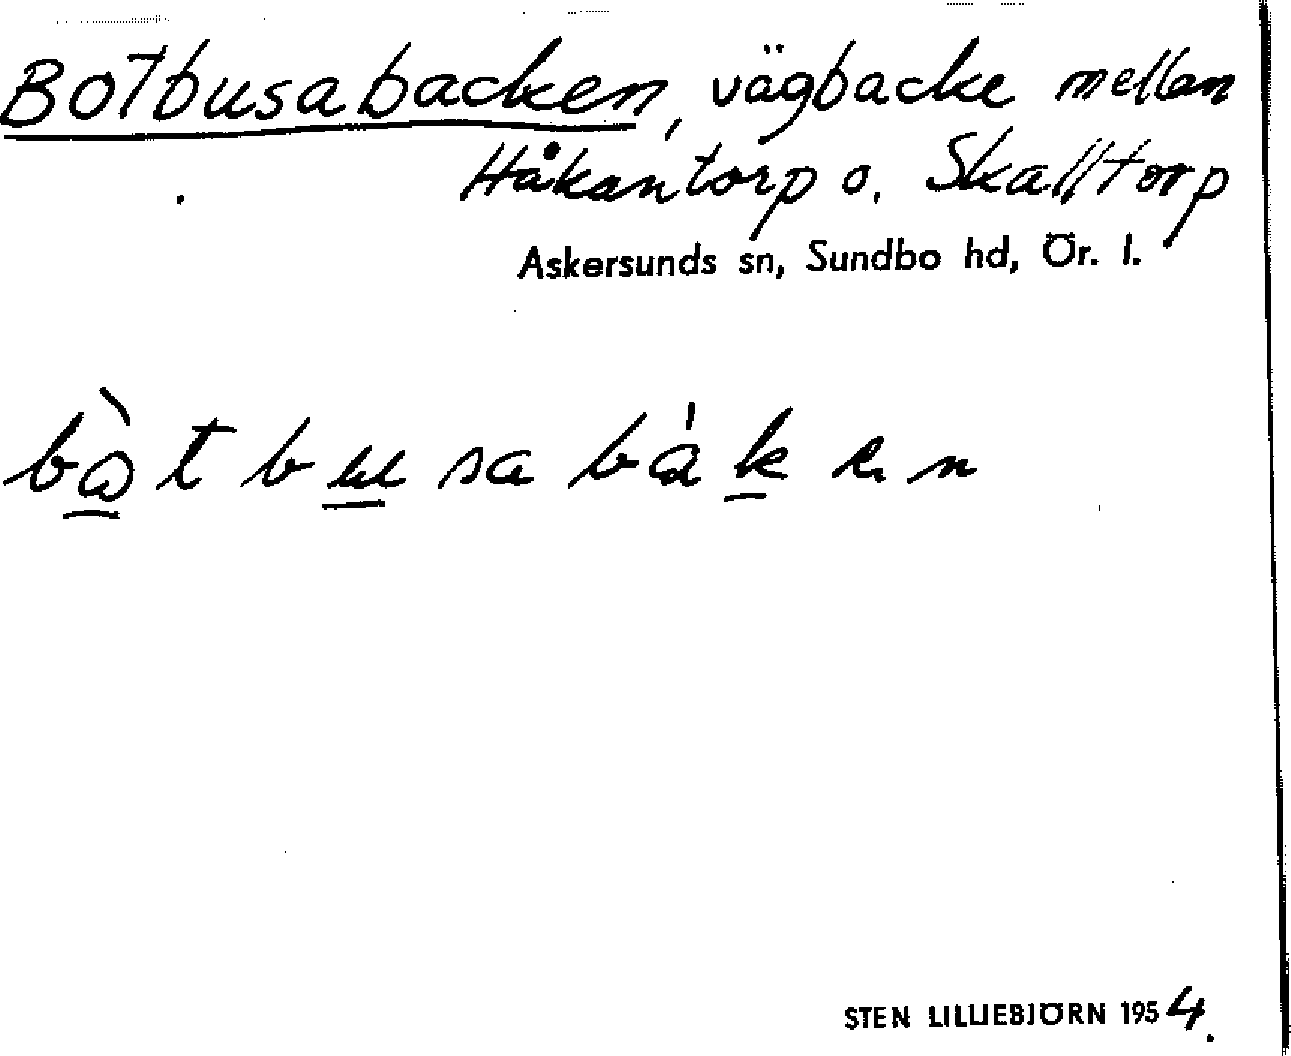 Botbusabacken, vägbacke mellan
Håkantorp o. Skalltorp
Askersunds sn, Sundbo hd, Ör. l.
STEN LILLIEBJÖRN 1954.